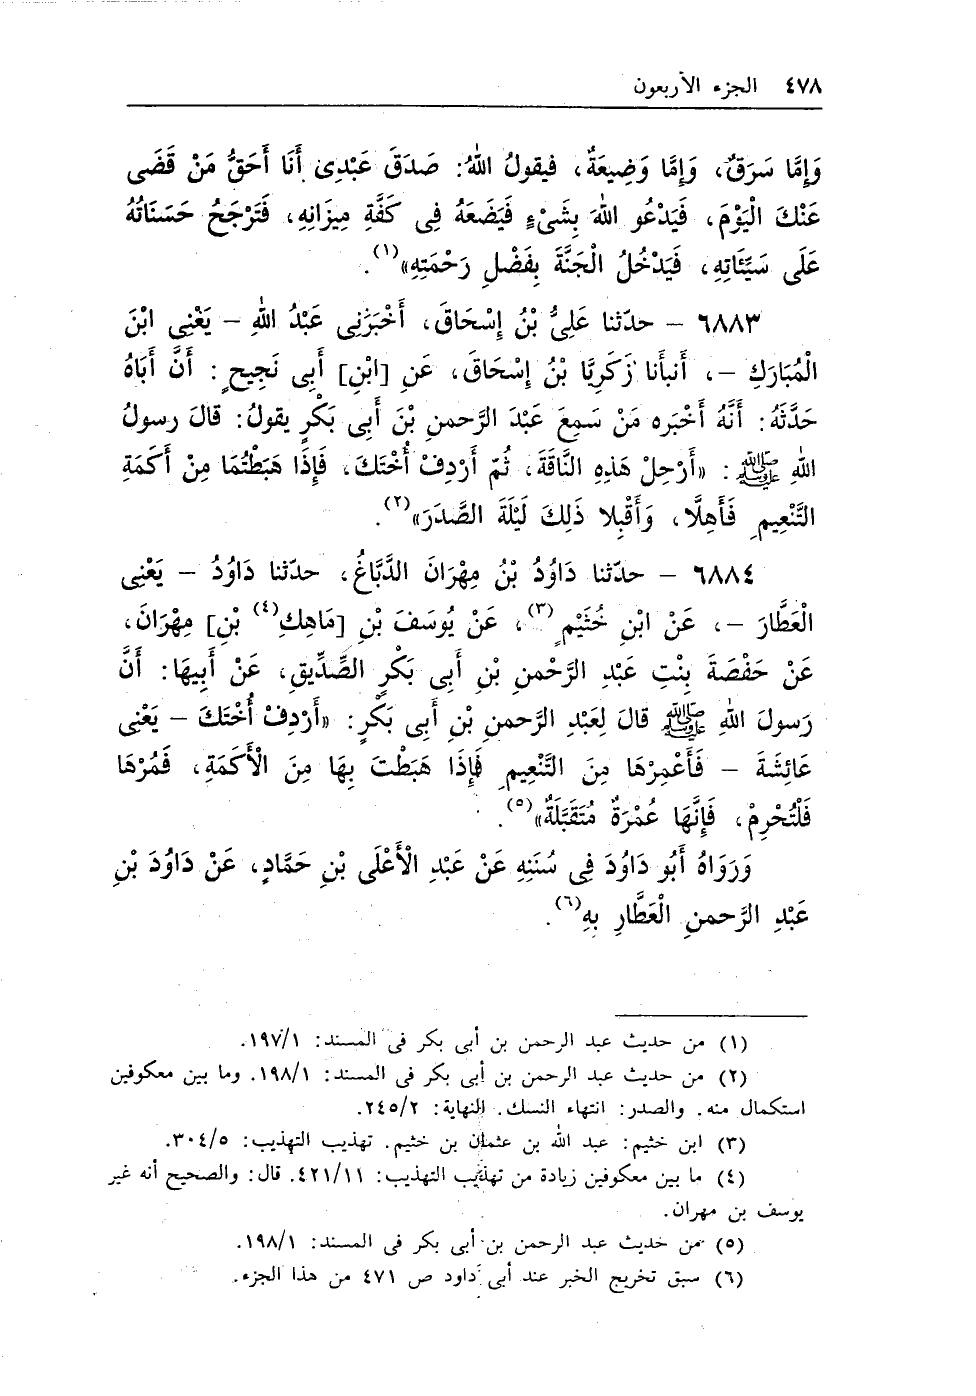 ٤٧٨ الجزء الأربعون
وَإِمَّا سَرَقٌ، وَإِمَّا وَضِيعَةٌ، فيقولُ اللهُ: صَدَقَ عَبْدِى أَنَا أَحَقُّ مَنْ قَضَى
عَنْكَ الْيَوْمَ، فَيَدْعُو اللهَ بِشَىْءٍ فَيَضَعَهُ فِى كَفَّةِ مِيزَانِهِ، فَتَرْجَحُ حَسَنَاتُهُ
عَلَى سَيِّئَاتِهِ، فَيَدْخُلُ الْجَنَّةَ بِفَضْلِ رَحْمَتِهِ»(١).
٦٨٨٣ – حدّثنا عَلِىُّ بْنُ إِسْحَاقَ، أَخْبَرَنِى عَبْدُ اللهِ – يَعْنِى ابْنَ
الْمُبَارَكِ –، أَنبأنا زَكَرِيَّا بْنُ إِسْحَاقَ، عَنِ [ابْنِ] أَبِى نَجِيحٍ: أَنَّ أَبَاهُ
حَدَّثَهُ: أَنَّهُ أَخْبَره مَنْ سَمِعَ عَبْدَ الرَّحمنِ بْنَ أَبِى بَكْرٍ يقولُ: قالَ رسولُ
اللهِ ﷺ: «أَرْحِلْ هَذِهِ النَّاقَةَ، ثُمّ أَرْدِفْ أُخْتَكَ، فَإِذَا هَبَطْتُمَا مِنْ أَكَمَةِ
التَّنْعِيمِ فَأَهِلَّا، وَأَقْبِلا ذَلِكَ لَيْلَةَ الصَّدَرَ»(٢).
٦٨٨٤ – حدّثنا دَاوُدُ بْنُ مِهْرَانَ الدَّبَّاغُ، حدّثنا دَاوُدُ – يَعْنِى
الْعَطَّارَ –، عَنْ ابْنِ خُثَيْمٍ(٣)، عَنْ يُوسَفَ بْنِ [مَاهِكِ(٤) بْنِ] مِهْرَانَ،
عَنْ حَفْصَةَ بِنْتِ عَبْدِ الرَّحْمنِ بْنِ أَبِى بَكْرٍ الصِّدِّيقِ، عَنْ أَبِيهَا: أَنَّ
رَسولَ اللهِ ﷺ قالَ لِعَبْدِ الرَّحمنِ بْنِ أَبِى بَكْرٍ: «أَرْدِفْ أُخْتَكَ – يَعْنِى
عَائِشَةَ – فَأَعْمِرْهَا مِنَ التَّنْعِيمِ فَإِذَا هَبَطْتَ بِهَا مِنَ الْأَكَمَةِ، فَمُرْهَا
فَلْتُحْرِمْ، فَإِنَّهَا عُمْرَةٌ مُتَقَبَّلَةٌ»(٥).
وَرَوَاهُ أَبُو دَاوُدَ فِى سُنَنِهِ عَنْ عَبْدِ الْأَعْلَى بْنِ حَمَّادٍ، عَنْ دَاوُدَ بْنِ
عَبْدِ الرَّحمنِ الْعَطَّارِ بِهِ(٦).
(١) من حديث عبد الرحمن بن أبى بكر فى المسند: ١٩٧/١.
(٢) من حديث عبد الرحمن بن أبى بكر فى المسند: ١٩٨/١. وما بين معكوفين
استكمال منه. والصدر: انتهاء النسك. النهاية: ٢٤٥/٢.
(٣) ابن خثيم: عبد الله بن عثمان بن خثيم. تهذيب التهذيب: ٣٠٤/٥.
(٤) ما بين معكوفين زيادة من تهذيب التهذيب: ٤٢١/١١. قال: والصحيح أنه غير
يوسف بن مهران.
(٥) من حديث عبد الرحمن بن أبى بكر فى المسند: ١٩٨/١.
(٦) سبق تخريج الخبر عند أبى داود ص ٤٧١ من هذا الجزء.